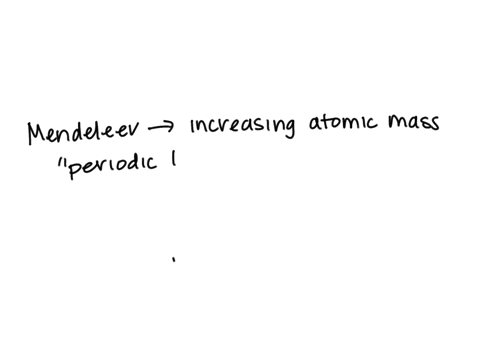 Mendeleev → increasing atomic mass
"periodic l